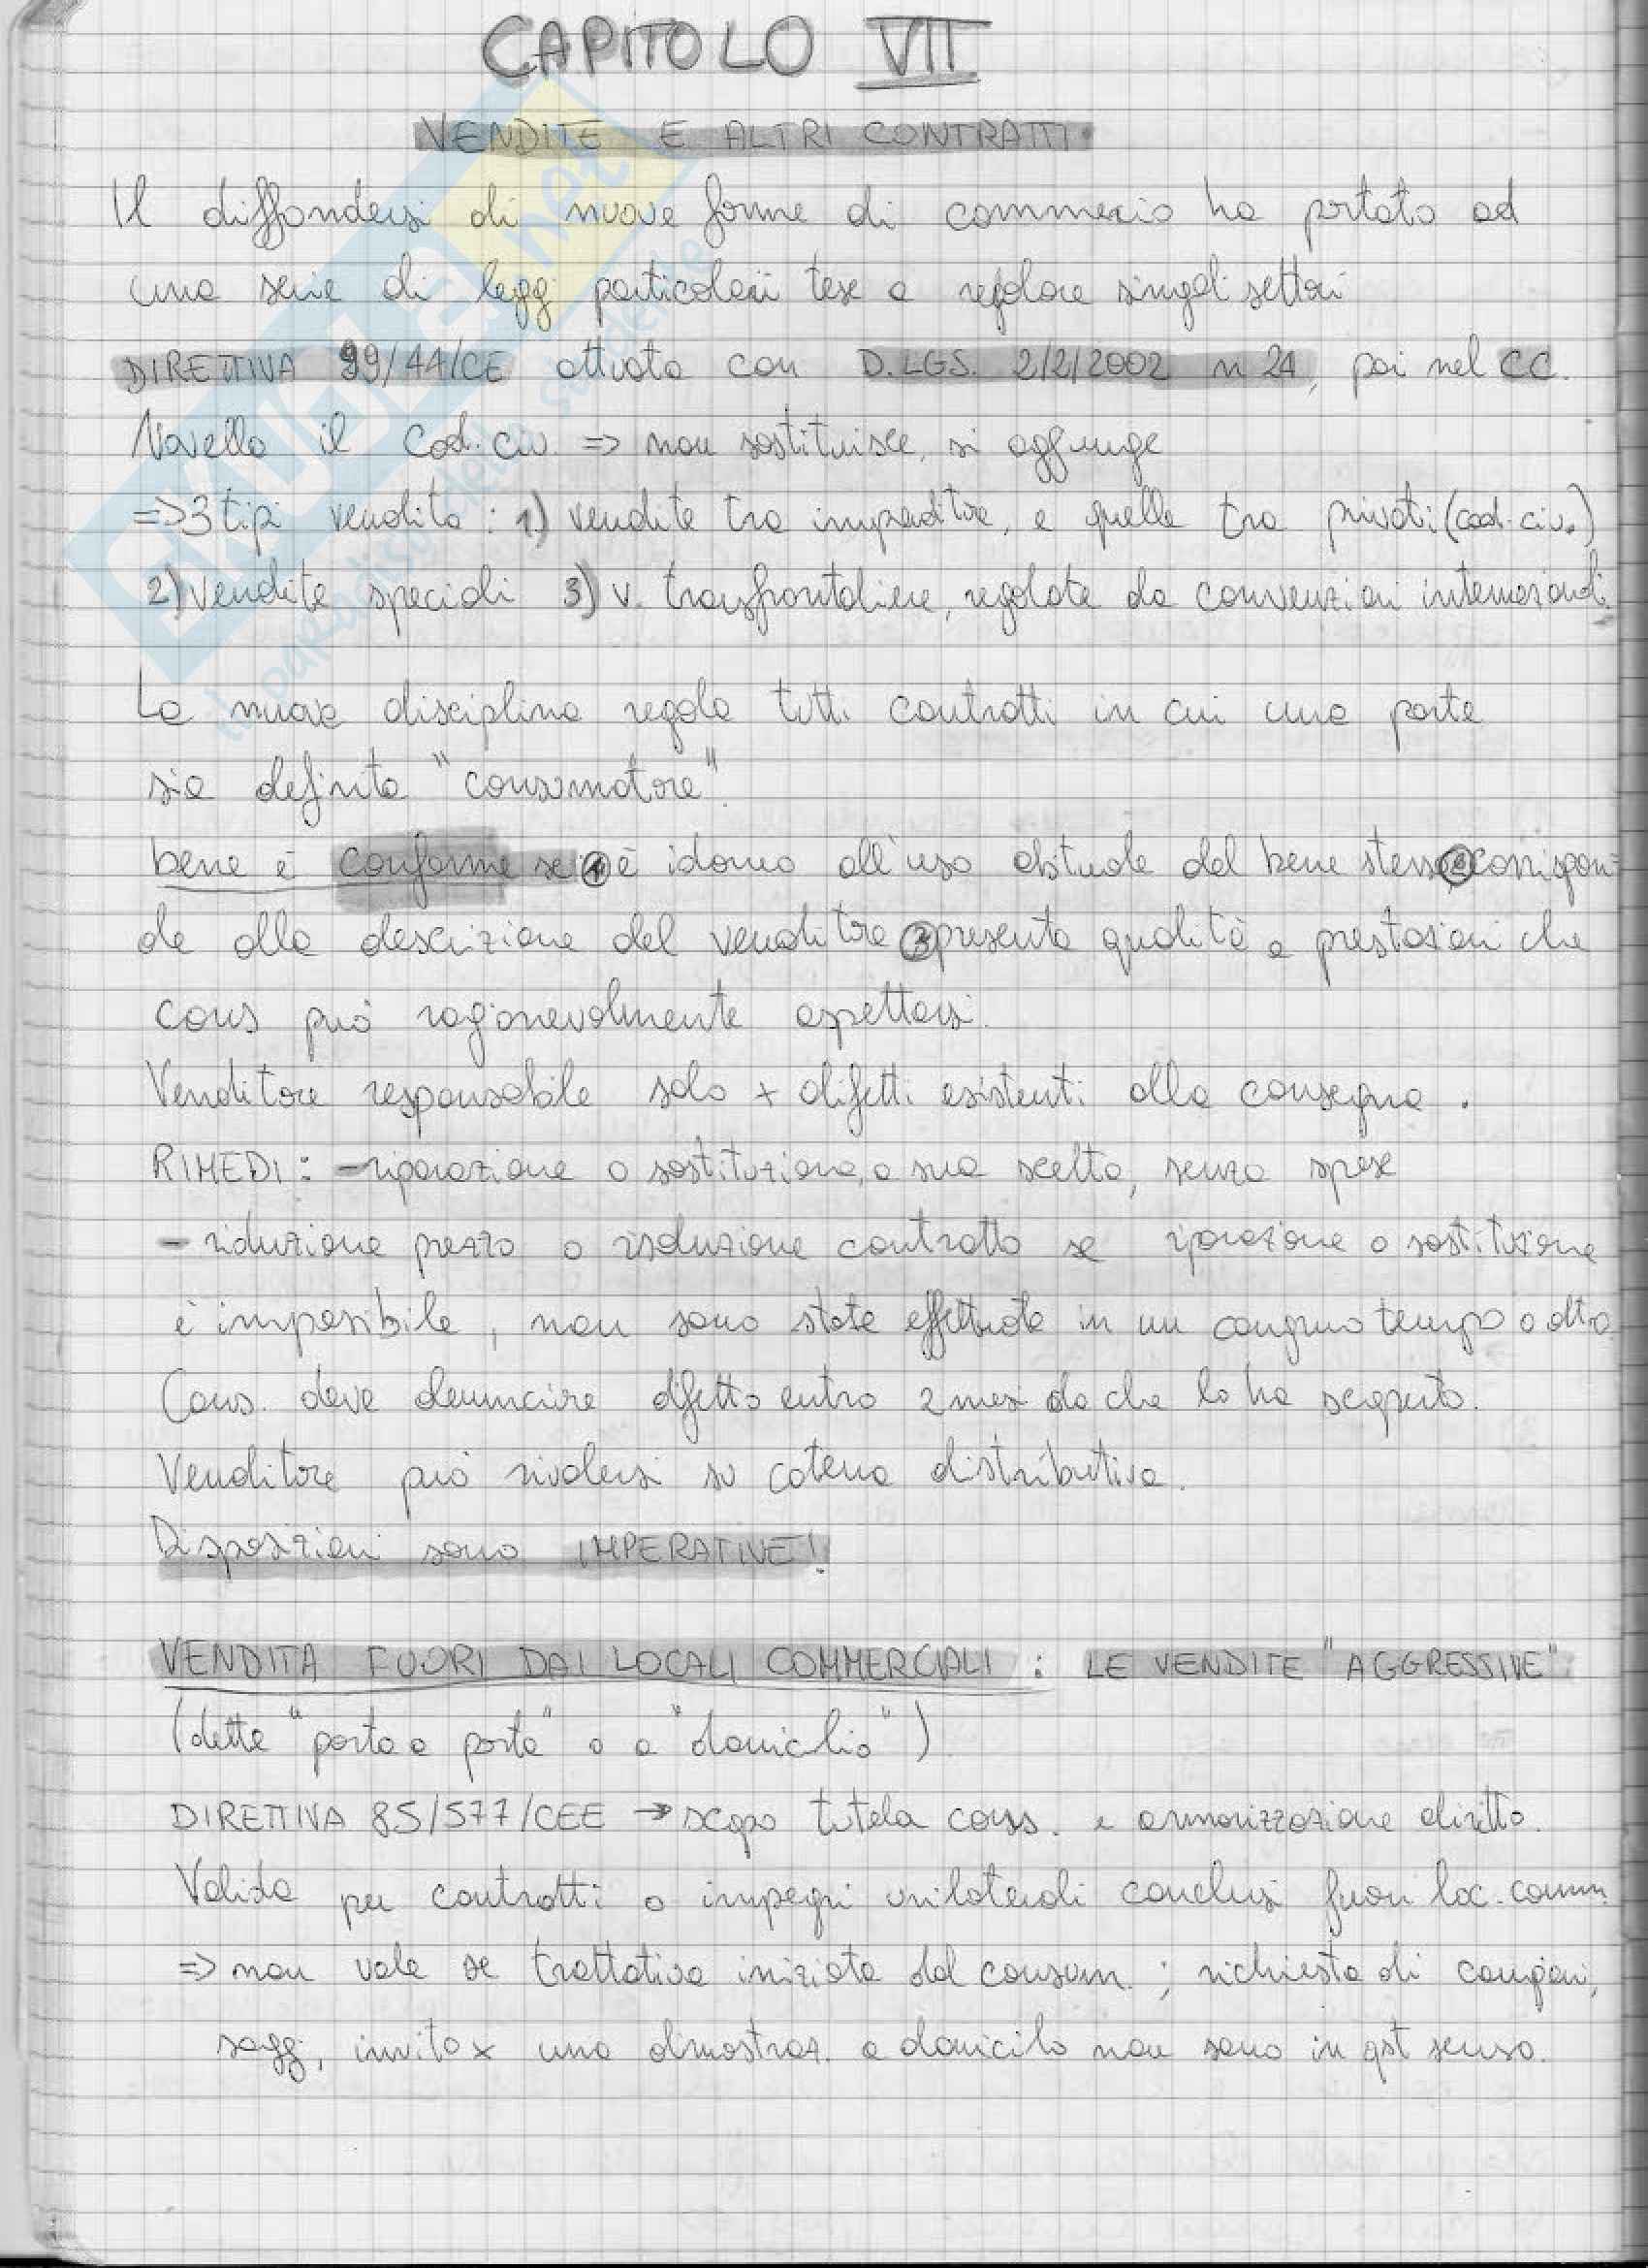 CAPITOLO VII
VENDITE E ALTRI CONTRATTI
Il diffondersi di nuove forme di commercio ha portato ad
una serie di leggi particolari tese a regolare singoli settori
DIRETTIVA 99/44/CE attuata con D.LGS. 2/2/2002 n 24, poi nel CC.
Novella il Cod. civ. => non sostituisce, si aggiunge
=> 3 tipi vendita: 1) vendite tra imprenditore, e quelle tra privati (cod. civ.)
2) vendite speciali 3) v. transfrontaliere, regolate da convenzioni internazionali.
La nuova disciplina regola tutti contratti in cui una parte
sia definita "consumatore".
bene è conforme se: 1 è idoneo all'uso abituale del bene stesso 2 corrispon-
de alla descrizione del venditore 3 presenta qualità e prestazioni che
cons può ragionevolmente aspettarsi.
Venditore responsabile solo x difetti esistenti alla consegna.
RIMEDI: - riparazione o sostituzione, a sua scelta, senza spese
- riduzione prezzo o risoluzione contratto se riparazione o sostituzione
è impossibile, non sono state effettuate in un congruo tempo o altro.
Cons. deve denunciare difetto entro 2 mesi da che lo ha scoperto.
Venditore può rivalersi su catena distributiva.
Disposizioni sono IMPERATIVE!
VENDITA FUORI DAI LOCALI COMMERCIALI: LE VENDITE "AGGRESSIVE"
(dette "porta a porta" o a "domicilio")
DIRETTIVA 85/577/CEE → scopo tutela cons. e armonizzazione diritto.
Valida per contratti o impegni unilaterali conclusi fuori loc. comm.
=> non vale se trattativa iniziata dal consum.; richiesta di campioni,
saggi, invito x una dimostraz. a domicilo non sono in qst senso.
SKUOLA.net
il paradiso dello studente